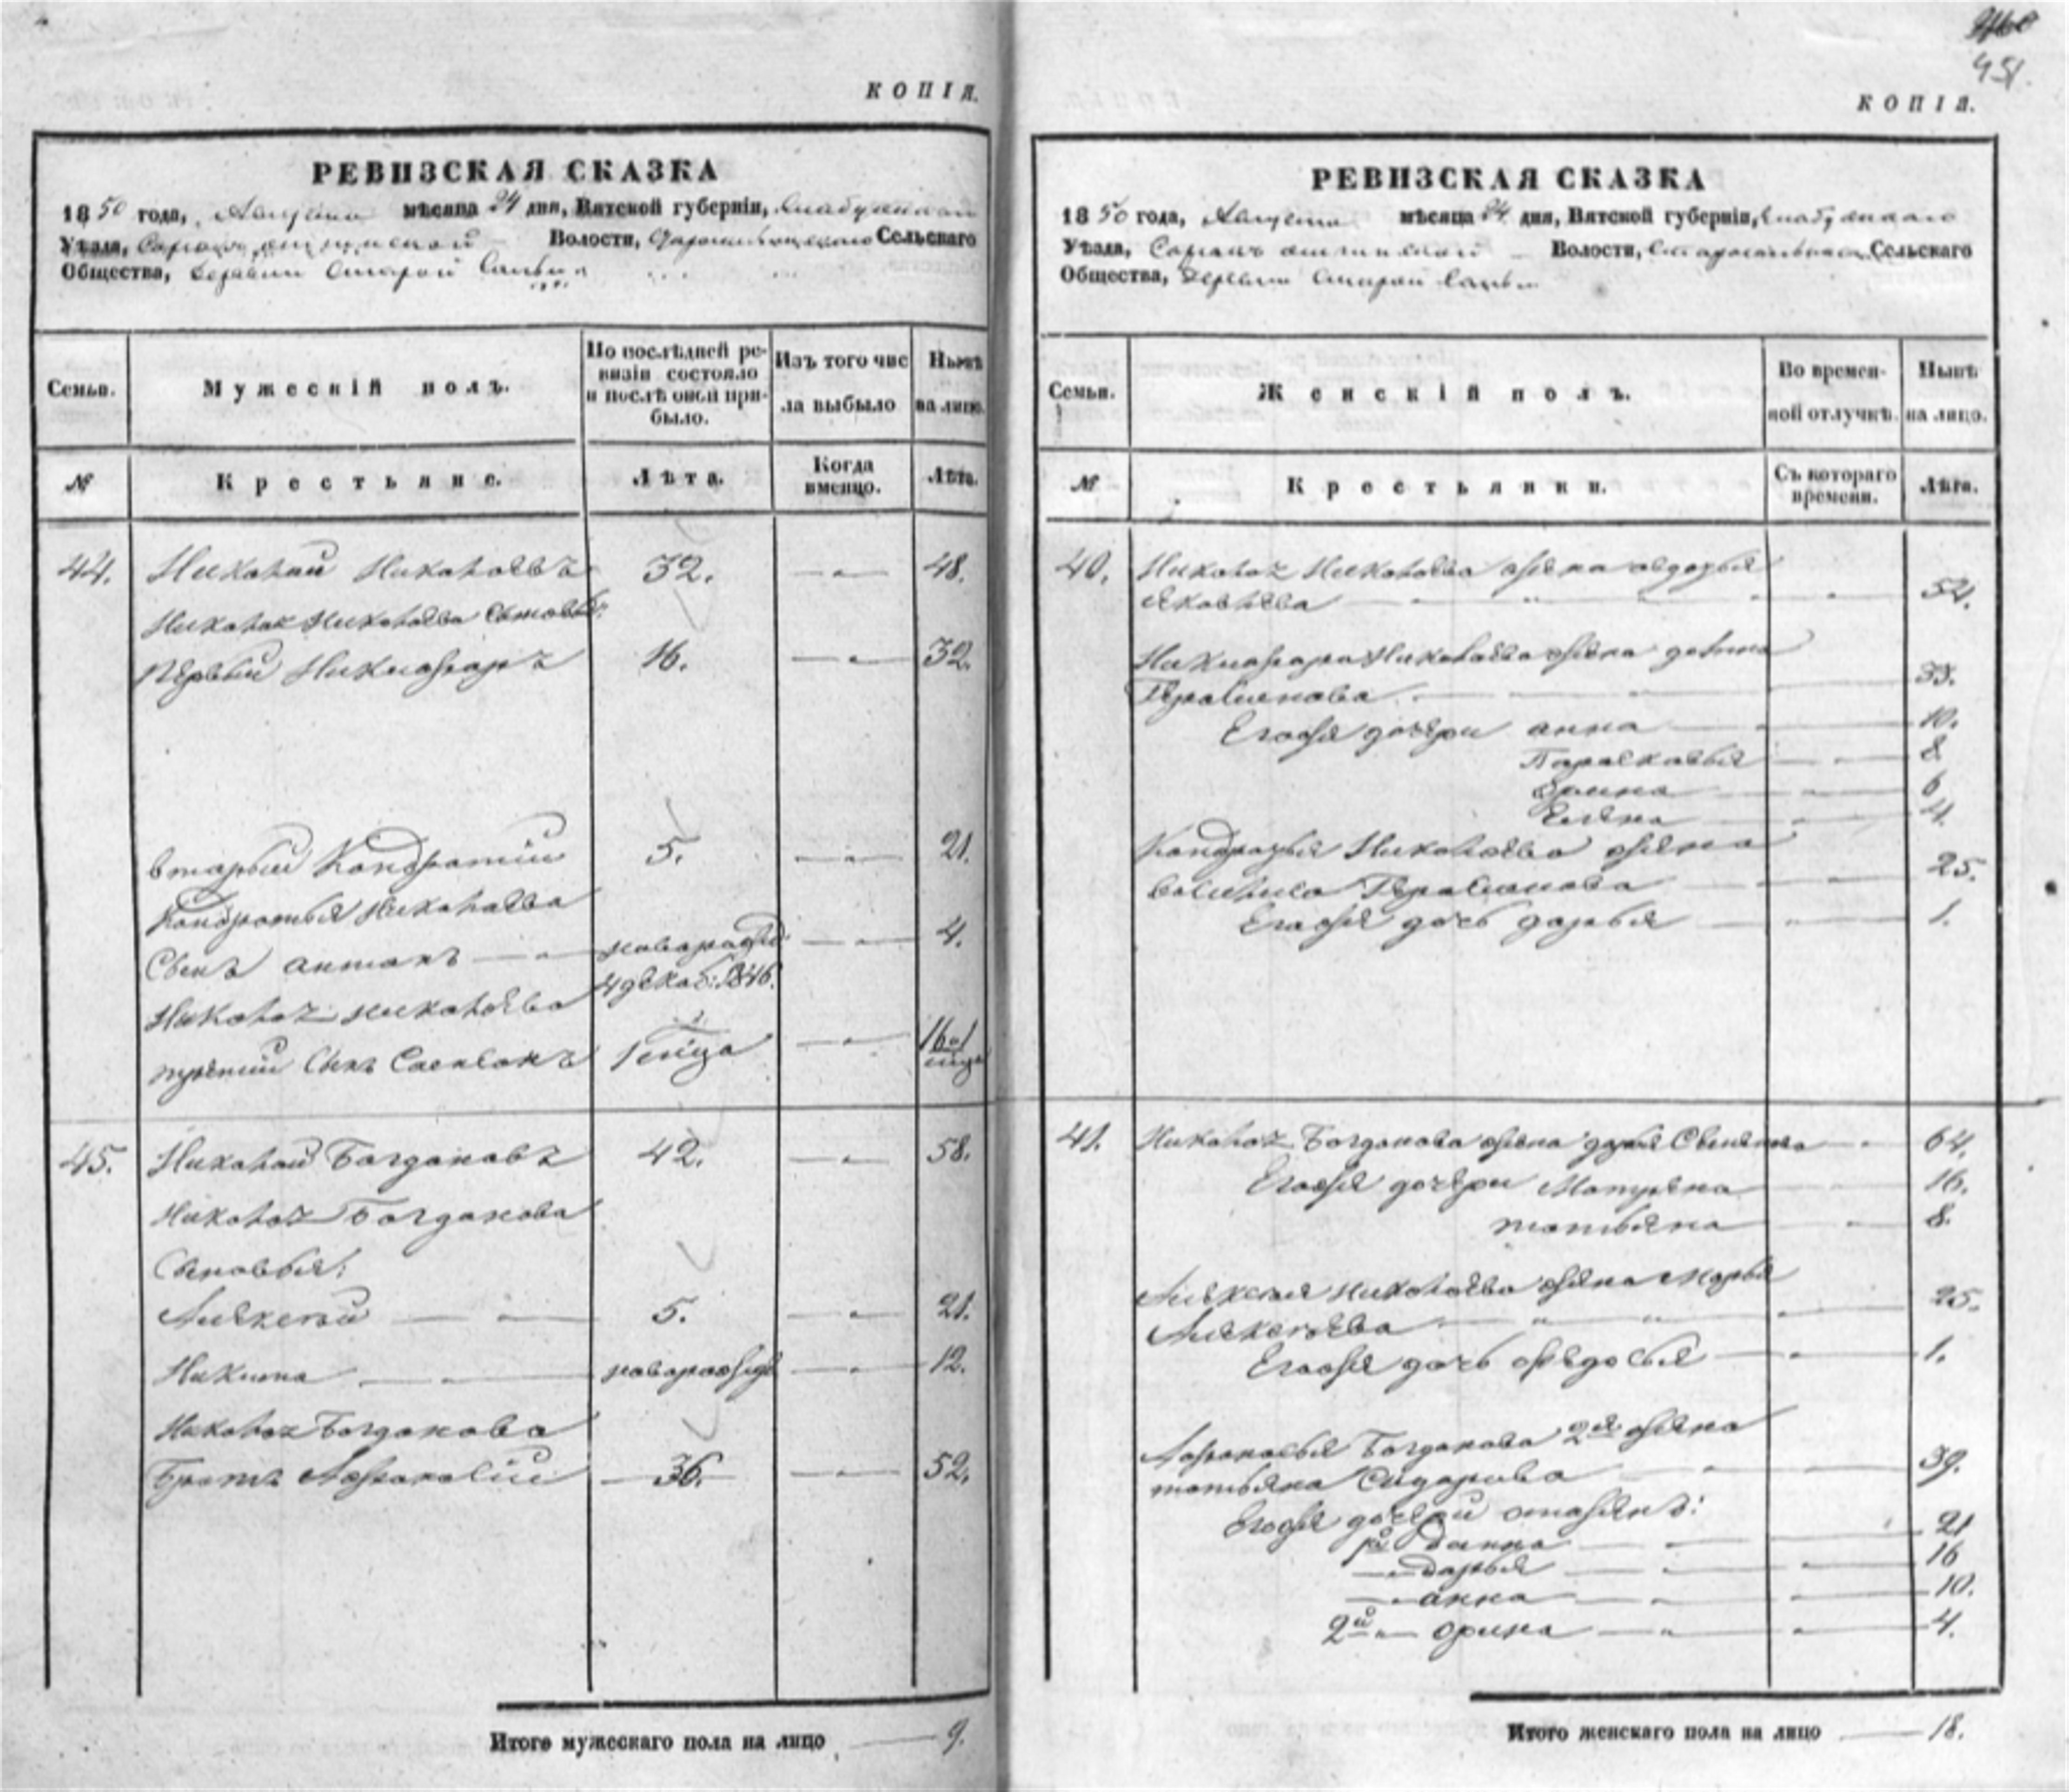 КОПІЯ.
РЕВИЗСКАЯ СКАЗКА
1850 года, Августа мѣсяца 24 дня, Вятской губерніи,
Уѣзда, Волости, Сельскаго
Общества, Деревни Старой
Семьи.
Мужескій полъ.
По послѣдней ре-
визіи состояло
и послѣ оной при-
было.
Изъ того чис
ла выбыло
Нынѣ
на лицо.
№
Крестьяне.
Лѣта.
Когда
именно.
Лѣта.
44. Николай Николаевъ 32. 48.
Николая Николаева сыновья:
первый Никифоръ 16. 32.
вторый Кондратій 5. 21.
Кондратья Николаева
сынъ антонъ новорожд. 4.
4 декаб: 1846.
Николая николаева
третий сынъ
45. Николай Богдановъ 42. 58.
Николая Богданова
Сыновья:
Алексей 5. 21.
Никита новорожд 12.
Николая Богданова
братъ Афонасій 36. 52.
Итого мужескаго пола на лицо 9.
451.
КОПІЯ.
РЕВИЗСКАЯ СКАЗКА
1850 года, Августа мѣсяца 24 дня, Вятской губерніи,
Уѣзда, Волости, Сельскаго
Общества, Деревни Старой
Семьи.
Женскій полъ.
Во времен-
ной отлучкѣ.
Нынѣ
на лицо.
№
Крестьянки.
Съ котораго
времени.
Лѣта.
40. Николая Николаева жена авдотья
Яковлева 54.
Никифора Николаева жена
Герасимова 33.
Егоже дочери анна 10.
Парасковья 8
6
Елена 4.
Кондратья Николаева жена
Василиса Герасимова 25.
Егоже дочь дарья 1.
41. Николая Богданова жена дарья 64.
Егоже дочери Матрена 16.
татьяна 8.
Алексея Николаева жена Марья
Алексеева 25.
Егоже дочь федосья 1.
Афонасья Богданова 2я жена
татьяна Сидорова 39.
Егоже дочери отъ женъ:
21
дарья 16
анна 10.
2й орина 4.
Итого женскаго пола на лицо 18.